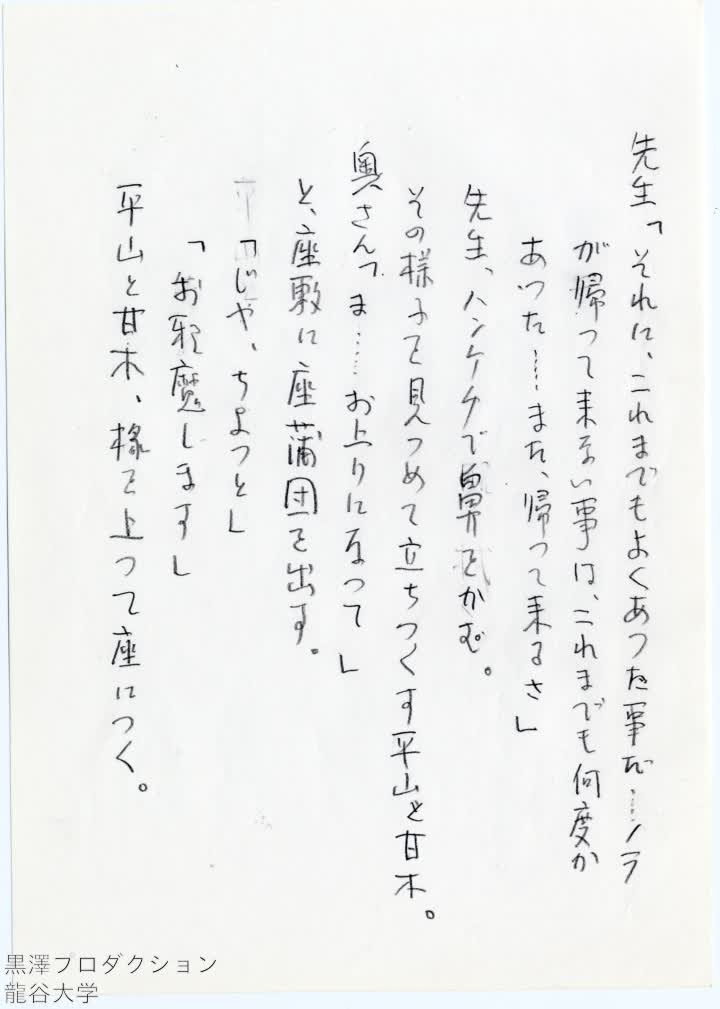 先生「それに、これまでもよくあつた事だ……ノラ
が帰つて来ない事は、これまでも何度か
あつた……また、帰つて来るさ」
先生、ハンケチで鼻をかむ。
その様子を見つめて立ちつくす平山と甘木。
奥さん「ま……お上りになつて」
と、座敷に座蒲団を出す。
「じや、ちよつと」
「お邪魔します」
平山と甘木、椽を上つて座につく。
黒澤プロダクション
龍谷大学